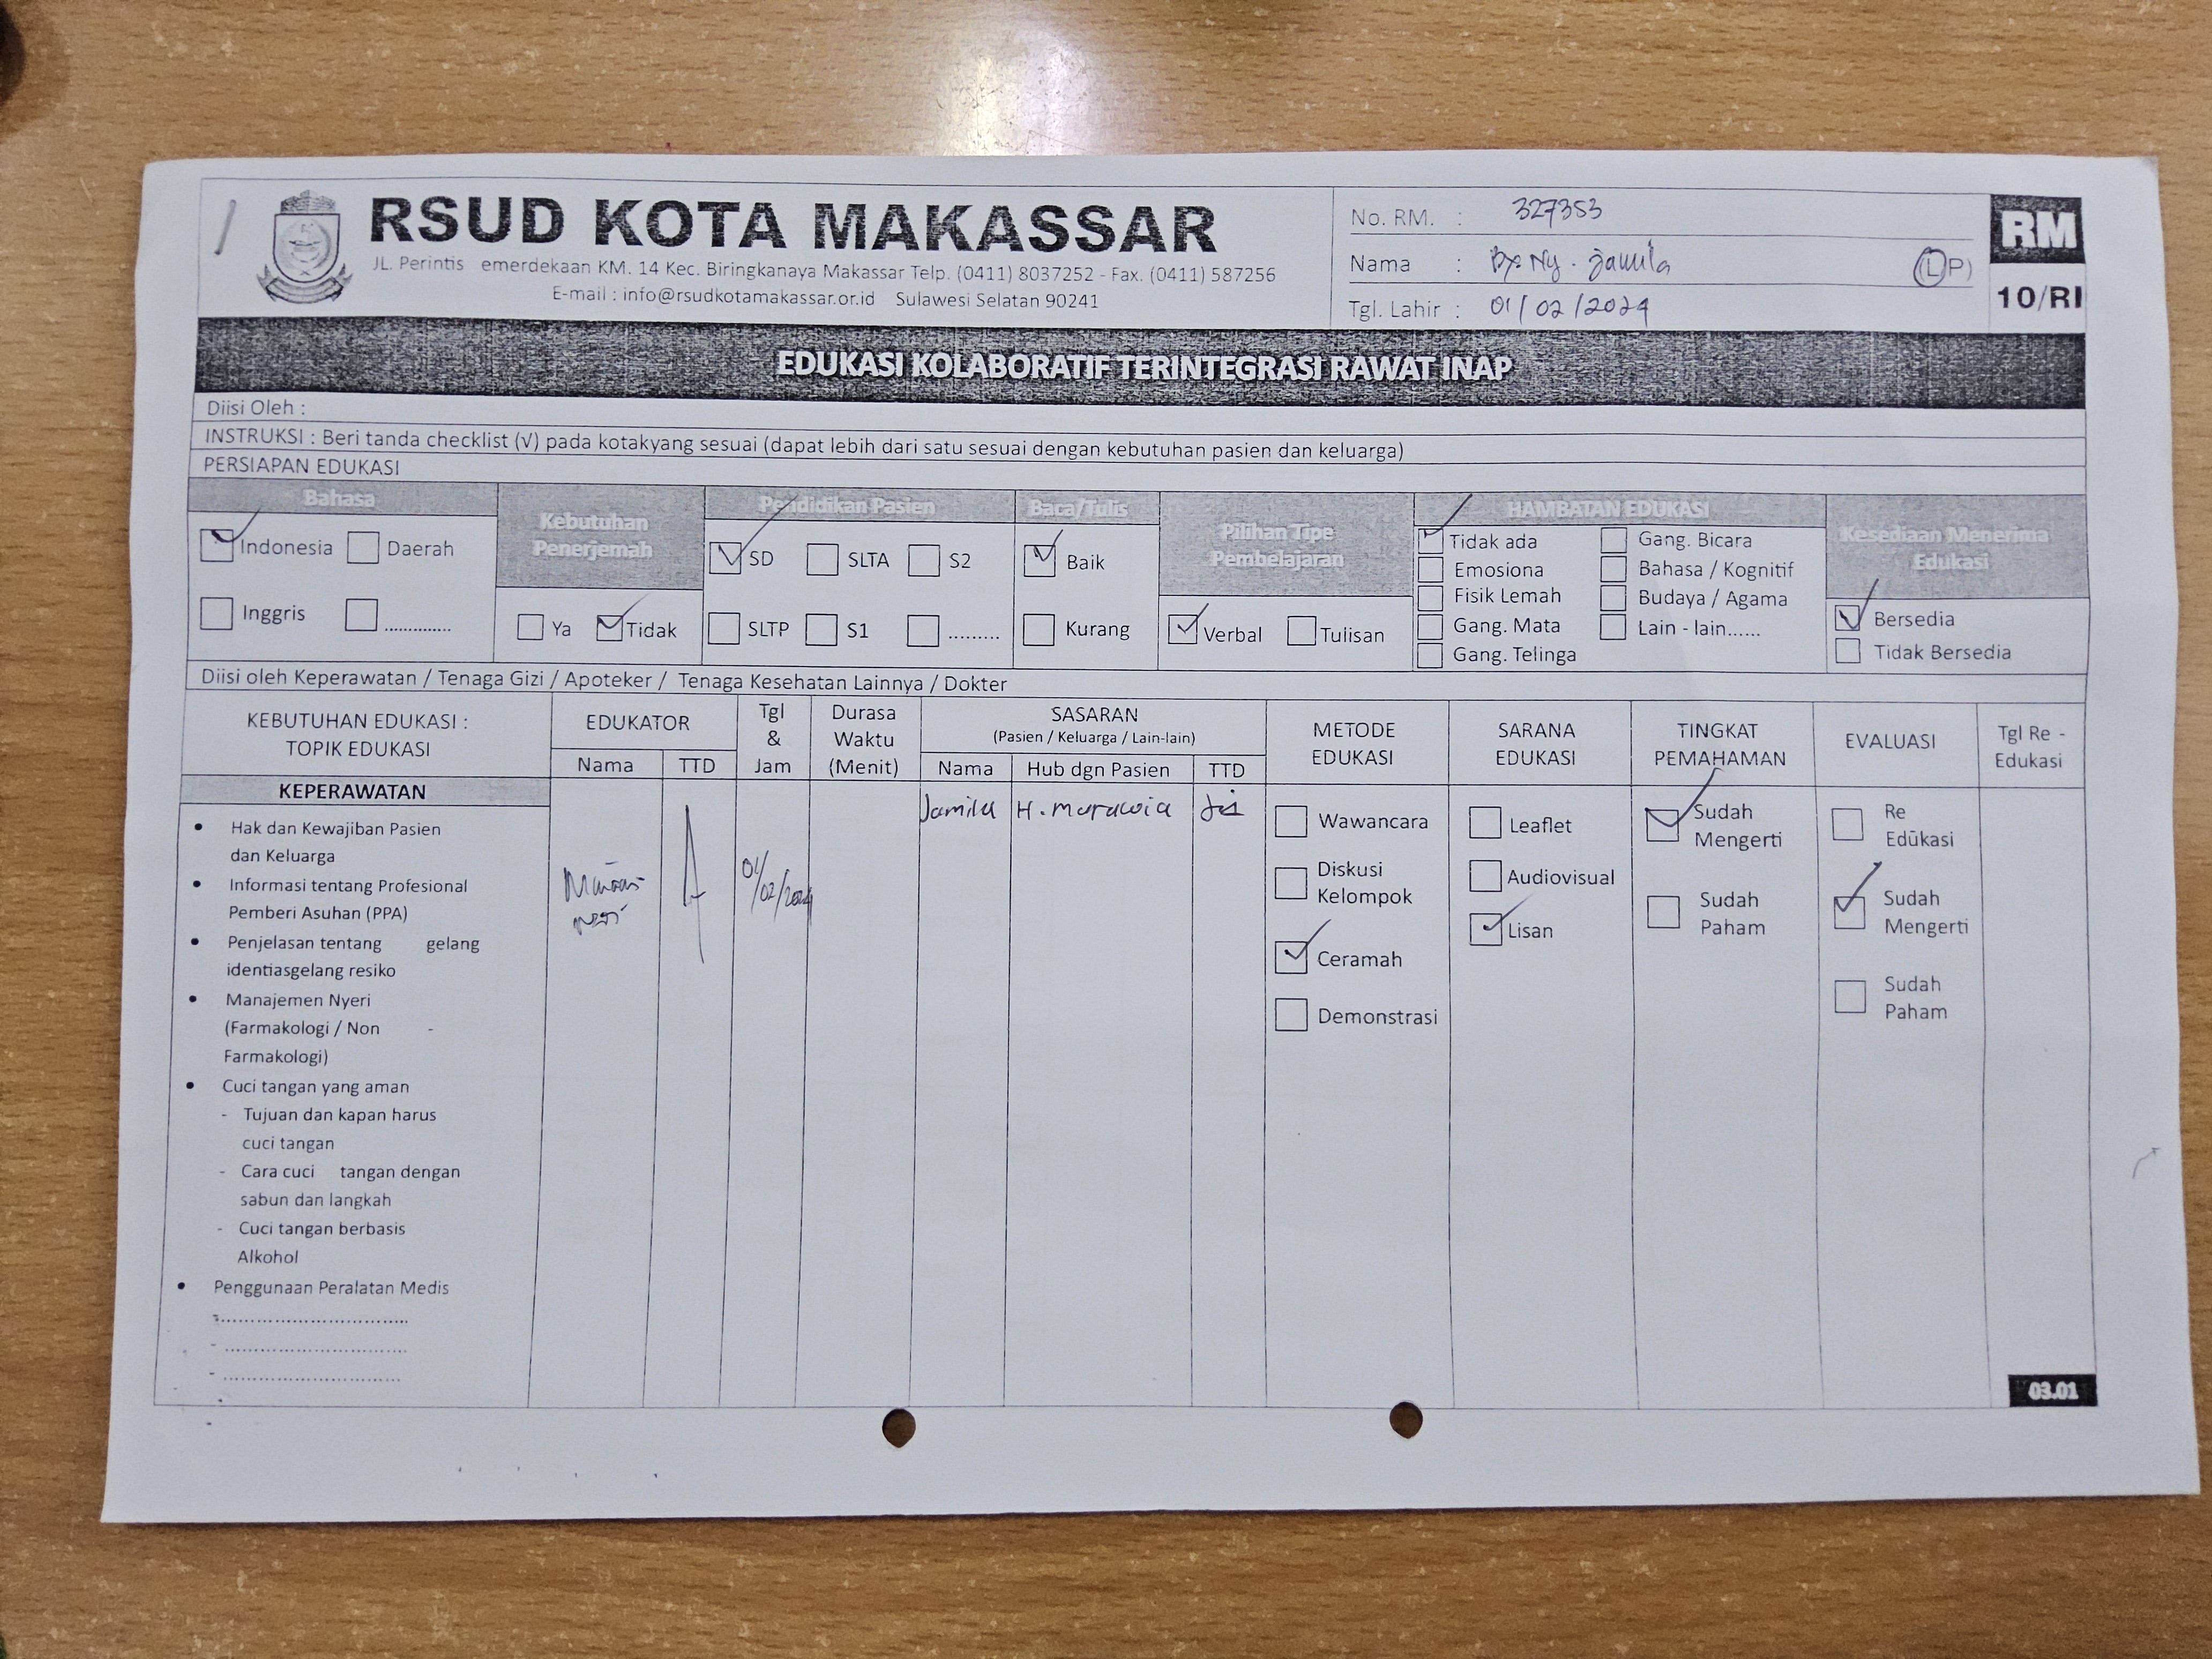 RSUD KOTA MAKASSAR
JL. Perintis emerdekaan KM. 14 Kec. Biringkanaya Makassar Telp. (0411) 8037252 - Fax. (0411) 587256
E-mail : info@rsudkotamakassar.or.id Sulawesi Selatan 90241
No. RM. : 327353
Nama : By Ny. Jamila (L P)
Tgl. Lahir : 01/02/2024
RM
10/RI
EDUKASI KOLABORATIF TERINTEGRASI RAWAT INAP
Diisi Oleh :
INSTRUKSI : Beri tanda checklist (√) pada kotakyang sesuai (dapat lebih dari satu sesuai dengan kebutuhan pasien dan keluarga)
PERSIAPAN EDUKASI
Bahasa
Indonesia Daerah
Inggris .............
Kebutuhan
Penerjemah
Ya Tidak
Pendidikan Pasien
SD SLTA S2
SLTP S1 .........
Baca/Tulis
Baik
Kurang
Pilihan Tipe
Pembelajaran
Verbal Tulisan
HAMBATAN EDUKASI
Tidak ada Gang. Bicara
Emosiona Bahasa / Kognitif
Fisik Lemah Budaya / Agama
Gang. Mata Lain - lain......
Gang. Telinga
Kesediaan Menerima
Edukasi
Bersedia
Tidak Bersedia
Diisi oleh Keperawatan / Tenaga Gizi / Apoteker / Tenaga Kesehatan Lainnya / Dokter
KEBUTUHAN EDUKASI :
TOPIK EDUKASI
EDUKATOR
Nama TTD
Tgl
&
Jam
Durasa
Waktu
(Menit)
SASARAN
(Pasien / Keluarga / Lain-lain)
Nama Hub dgn Pasien TTD
METODE
EDUKASI
SARANA
EDUKASI
TINGKAT
PEMAHAMAN
EVALUASI
Tgl Re -
Edukasi
KEPERAWATAN
• Hak dan Kewajiban Pasien
dan Keluarga
• Informasi tentang Profesional
Pemberi Asuhan (PPA)
• Penjelasan tentang gelang
identiasgelang resiko
• Manajemen Nyeri
(Farmakologi / Non -
Farmakologi)
• Cuci tangan yang aman
- Tujuan dan kapan harus
cuci tangan
- Cara cuci tangan dengan
sabun dan langkah
- Cuci tangan berbasis
Alkohol
• Penggunaan Peralatan Medis
- ..............................
- ..............................
- ..............................
01/
/02/2024
Jamila
Wawancara
Diskusi
Kelompok
Ceramah
Demonstrasi
Leaflet
Audiovisual
Lisan
Sudah
Mengerti
Sudah
Paham
Re
Edukasi
Sudah
Mengerti
Sudah
Paham
03.01